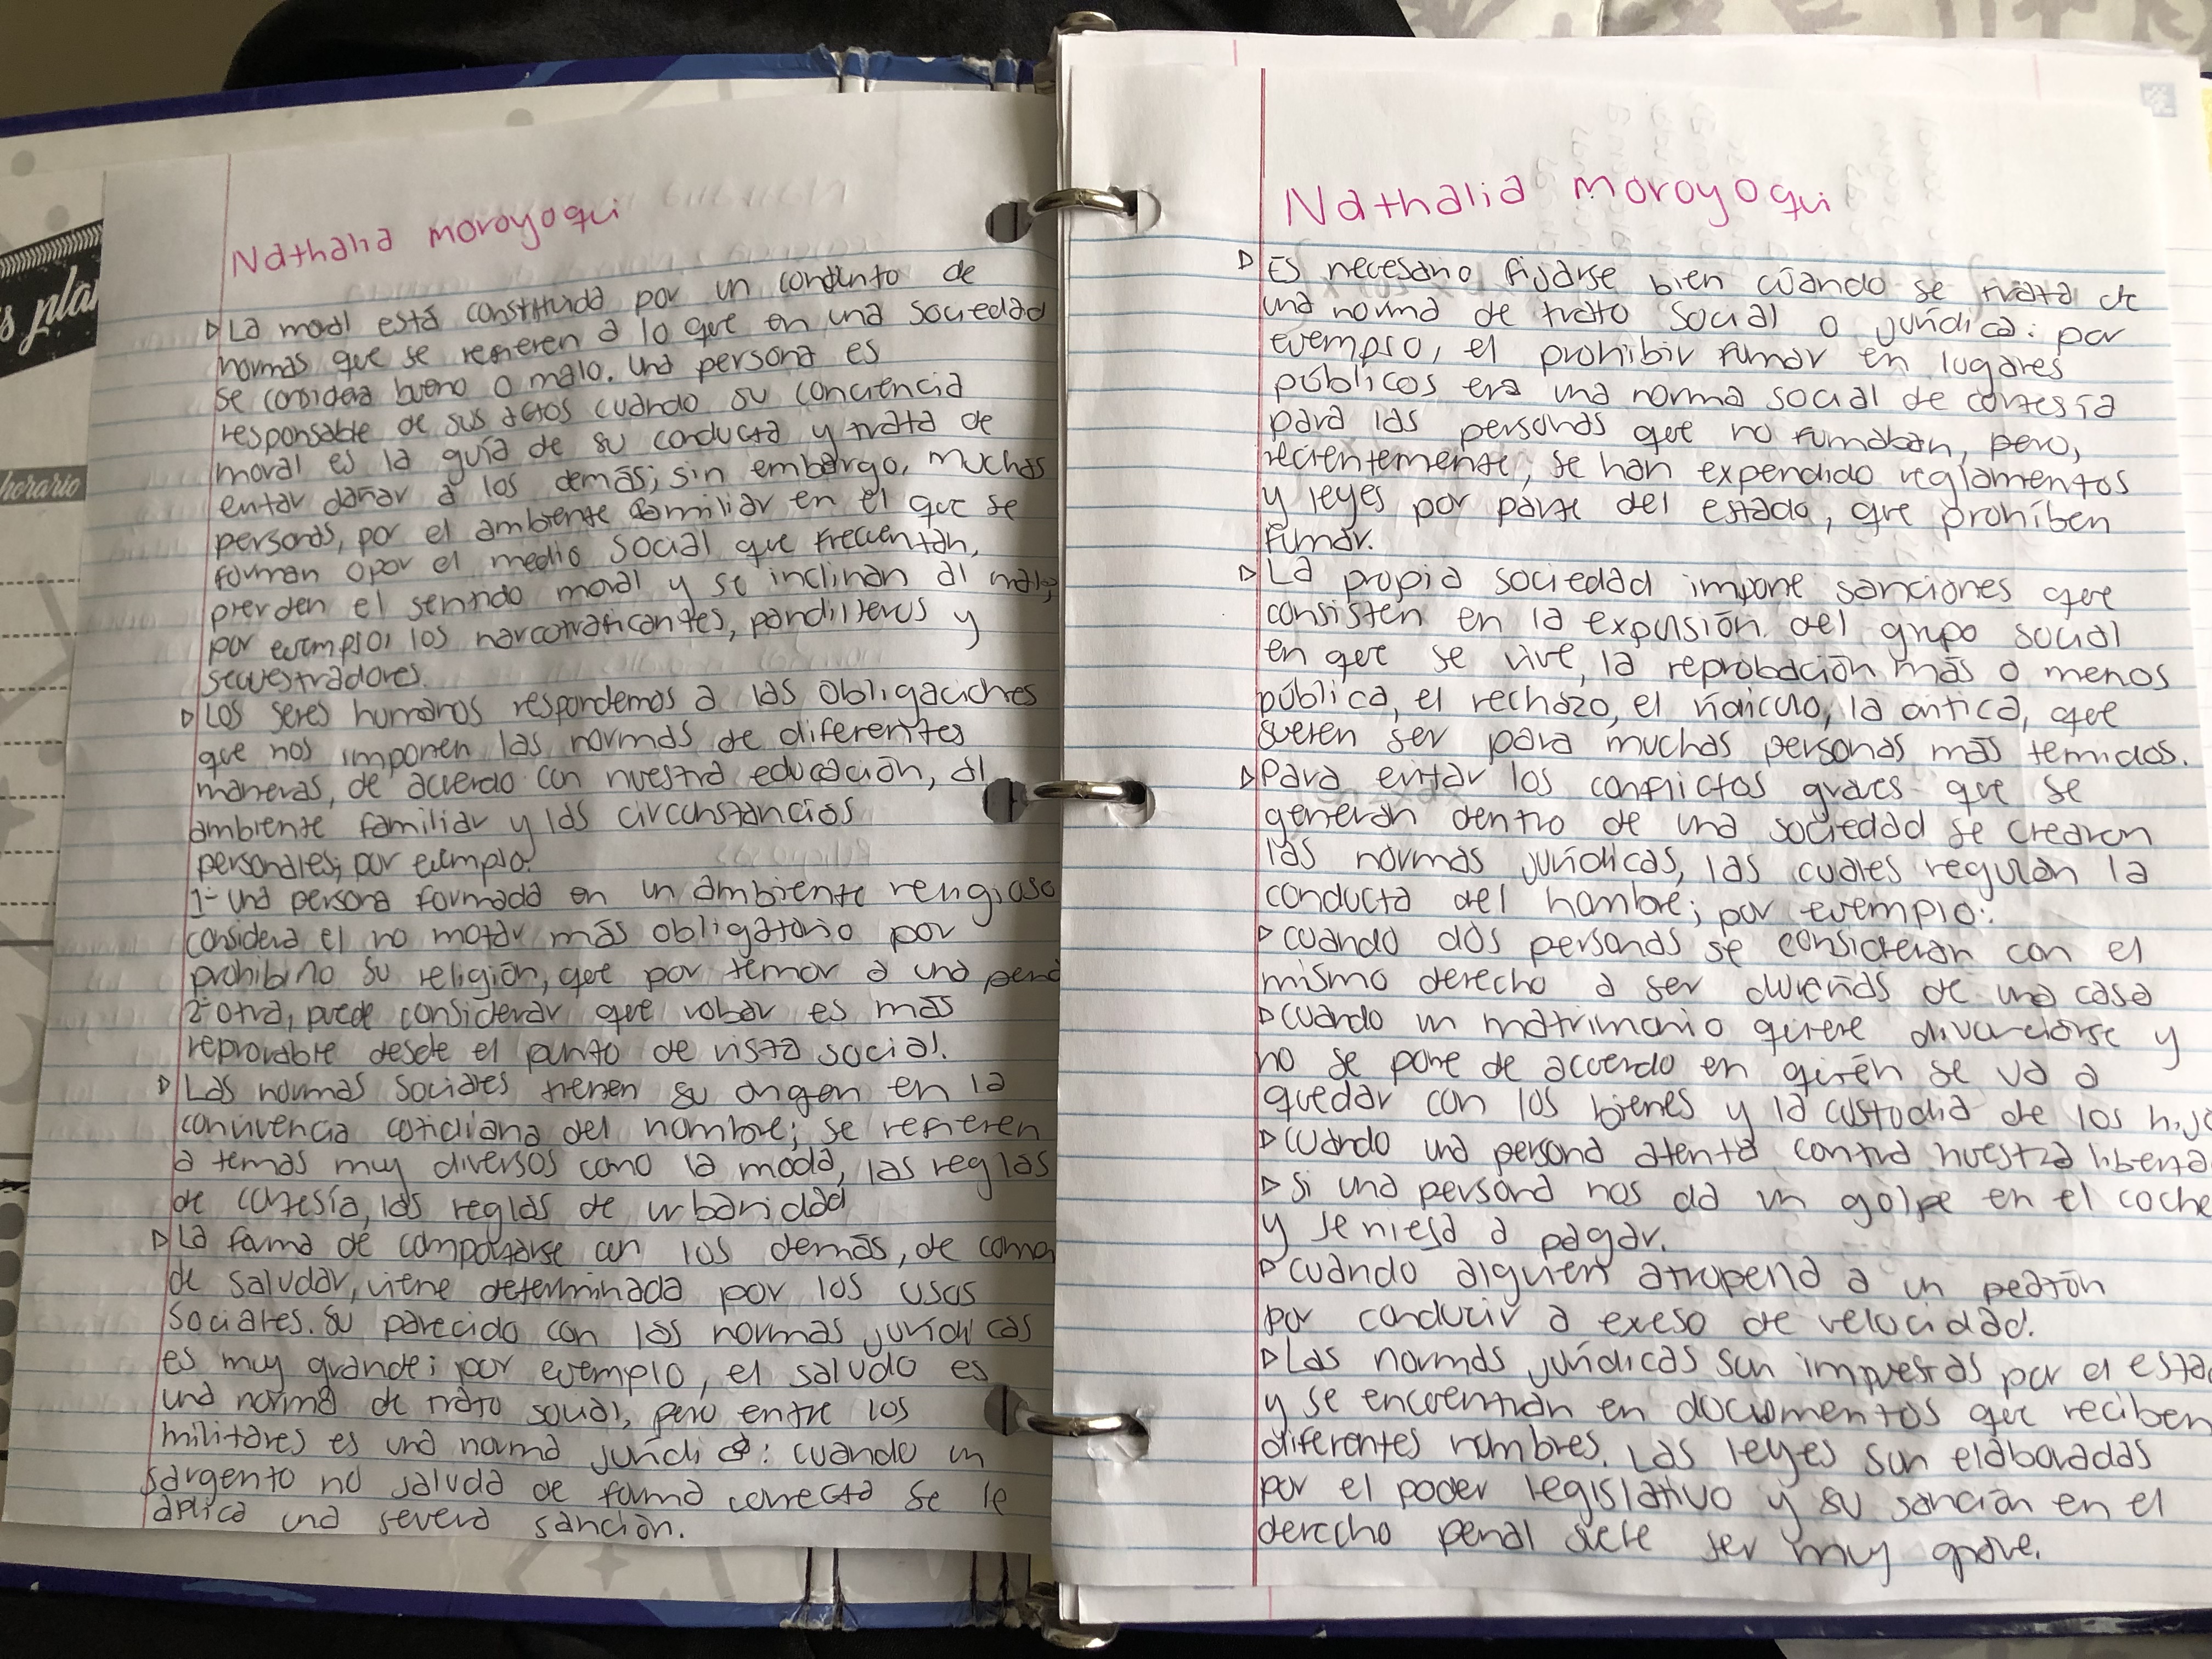 s pla
horario
Nathalia moroyoqui
▷La moral está constituida por un conjunto de
normas que se refieren a lo que en una sociedad
se considera bueno o malo. una persona es
responsable de sus actos cuando su conciencia
moral es la guía de su conducta y trata de
evitar dañar a los demás; sin embargo, muchas
personas, por el ambiente familiar en el que se
forman o por el medio social que frecuentan,
pierden el sentido moral y se inclinan al mal;
por ejemplo, los narcotraficantes, pandilleros y
secuestradores.
▷Los seres humanos respondemos a las obligaciones
que nos imponen las normas de diferentes
maneras, de acuerdo con nuestra educación, al
ambiente familiar y las circunstancias
personales; por ejemplo:
1- una persona formada en un ambiente religioso
considera el no matar más obligatorio por
prohibirlo su religión, que por temor a una pena
2- otra, puede considerar que robar es más
reprobable desde el punto de vista social.
▷Las normas sociales tienen su origen en la
convivencia cotidiana del hombre; se refieren
a temas muy diversos como la moda, las reglas
de cortesía, las reglas de urbanidad
▷La forma de comportarse con los demás, de comer
de saludar, viene determinada por los usos
sociales. Su parecido con las normas jurídicas
es muy grande; por ejemplo, el saludo es
una norma de trato social, pero entre los
militares es una norma jurídica: cuando un
sargento no saluda de forma correcta se le
aplica una severa sanción.
Nathalia moroyoqui
▷Es necesario fijarse bien cuándo se trata de
una norma de trato social o jurídica: por
ejemplo, el prohibir fumar en lugares
públicos era una norma social de cortesía
para las personas que no fumaban, pero,
recientemente, se han expendido reglamentos
y leyes por parte del estado, que prohíben
fumar.
▷La propia sociedad impone sanciones que
consisten en la expulsión del grupo social
en que se vive, la reprobación más o menos
pública, el rechazo, el ridículo, la crítica, que
suelen ser para muchas personas más temidos.
▷Para evitar los conflictos graves que se
generan dentro de una sociedad se crearon
las normas jurídicas, las cuales regulan la
conducta del hombre; por ejemplo:
▷cuando dos personas se consideran con el
mismo derecho a ser dueñas de una casa
▷cuando un matrimonio quiere divorciarse y
no se pone de acuerdo en quién se va a
quedar con los bienes y la custodia de los hijo
▷cuando una persona atenta contra nuestra liberta
▷Si una persona nos da un golpe en el coche
y se niega a pagar.
▷cuando alguien atropella a un peatón
por conducir a exeso de velocidad.
▷Las normas jurídicas son impuestas por el estad
y se encuentran en documentos que reciben
diferentes nombres. Las leyes son elaboradas
por el poder legislativo y su sanción en el
derecho penal suele ser muy grave.